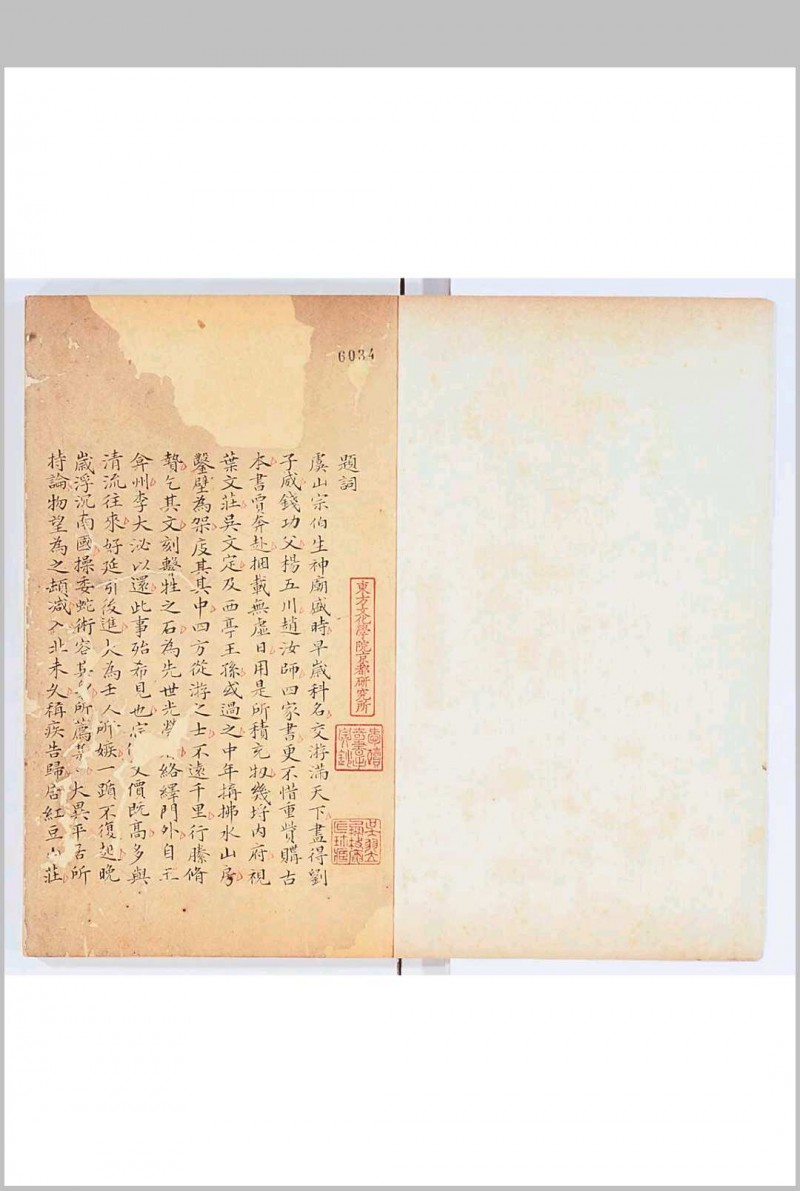 6034
題詞
虞山宗伯生神廟盛時早歲科名交游滿天下盡得劉
子威錢功父楊五川趙汝師四家書更不惜重貲購古
本書賈奔赴捆載無虛日用是所積充牣幾埒內府視
葉文莊吳文定及西亭王孫或過之中年搆拂水山房
鑿壁為架庋其中四方從游之士不遠千里行縢脩
贄乞其文刻繫牲之石為先世光榮絡繹門外自王
弇州李大泌以還此事殆希見也 價既高多與
清流往來好延引後進大為壬人所嫉一躓不復起晚
歲浮沉南國操委蛇術容其 所薦 大異平居所
持論物望為之頓減入北未久稱疾告歸居紅豆山莊
東方文化學院京都研究所